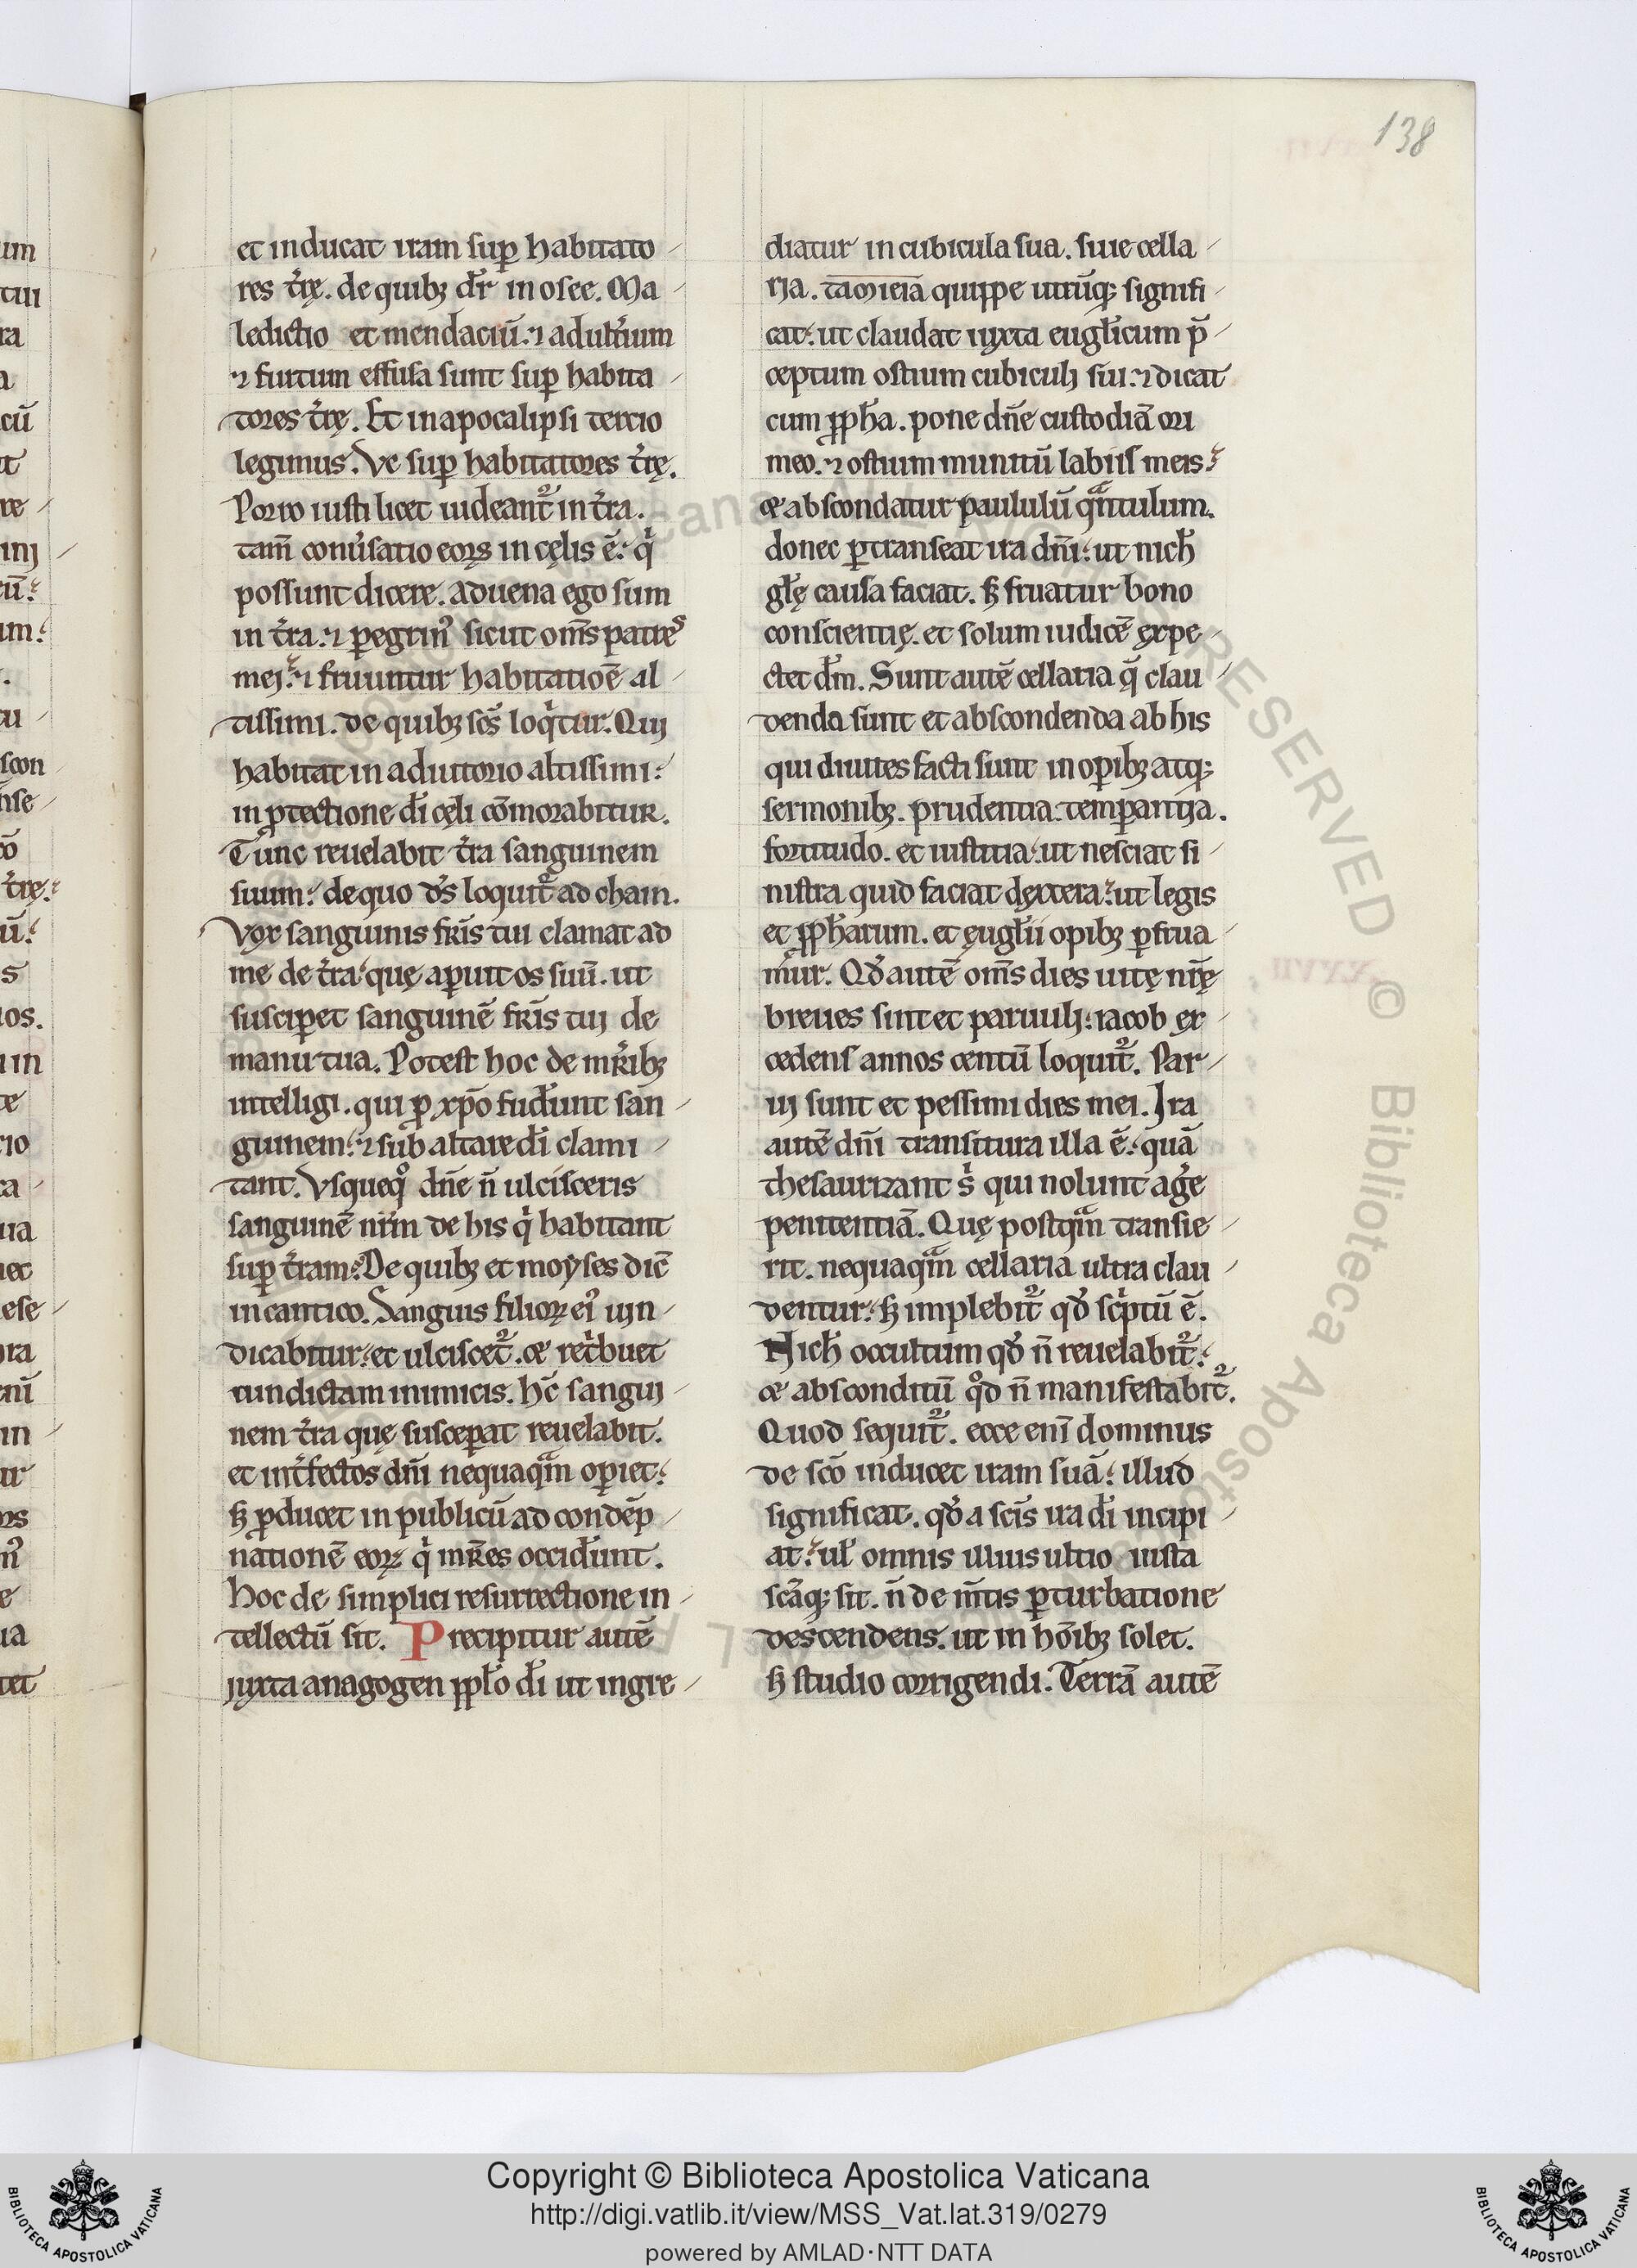 138
et inducat iram sup̱ habitato
res t̉rę. de quibꝫ dr̄ in osee. Ma
ledictio et mendaciū. ⁊ adult̉ium
⁊ furtum effusa sunt sup̱ habita
tores t̉rę. Et in apocalipsi tercio
legimus. Ve sup̱ habitatores t̉rę.
Porro iusti licet uideant᷑ in t̉ra.
tam̄ conu̓satio eoꝝ in cęlis ē. q̓
possunt dicere. aduena ego sum
in t̉ra. ⁊ ꝑegrinꝰ sicut om̄s patres
mei. ⁊ fruuntur habitatioē al
tissimi. de quibꝫ sc̄s loq̓tur. Qui
habitat in adiutorio altissimi.
in ꝓtectione dī cęli cōmorabitur.
Tunc reuelabit t̉ra sanguinem
suum. de quo ds̄ loquit᷑ ad cham.
Vox sanguinis fr̄is tui clamat ad
me de t̉ra. quę aꝑuit os suū. ut
susciꝑet sanguinē fr̄is tui de
manu tua. Potest hoc de mr̄ibꝫ
intelligi. qui ꝓ xp̄o fud̓unt san
guinem. ⁊ sub altare dī clami
tant. Vsqueqͦ dn̄e n̄ ulcisceris
sanguinē nr̄m de his q̓ habitant
sup̱ t̉ram. De quibꝫ et moyses dic̄
in cantico. Sanguis filioꝝ eiꝰ uin
dicabitur. et ulciscet᷑. & ret̓buet
uindictam inimicis. Hc̄ sangui
nem t̉ra quę susceꝑat reuelabit.
et int̓fectos dn̄i nequaqᷓm oꝑiet.
sꝫ ꝓducet in publicū ad condēp
nationē eoꝝ q̓ mr̄es occid̓unt.
hoc de simplici resurrectione in
tellectū sit. Precipitur autē
iuxta anagogen pp̄lo dī ut ingre
diatur in cubicula sua. siue cella
ria. tamieia quippe utrūqꝫ signifi
cat. ut claudat iuxta euglīcum p̄
ceptum ostium cubiculi sui. ⁊ dicat
cum ꝓph̄a. pone dn̄e custodiā ori
meo. ⁊ ostium munitū labiis meis.
& abscondatur paululū qᷓntulum.
donec ꝑtranseat ira dn̄i. ut nich̄
gl̄ę causa faciat. sꝫ fruatur bono
conscientię. et solum iudicē expe
ctet dm̄. Sunt autē cellaria q̄ clau
denda sunt et abscondenda ab his
qui diuites facti sunt in oꝑibꝫ atqꝫ
sermonibꝫ. prudentia. temꝑantia.
fortitudo. et iustitia. ut nesciat si
nistra quid faciat dextera. ut legis
et ꝓph̄arum. et euglīi opibꝫ ꝑfrua
m̓ur. Qd̄ autē om̄s dies uitę nr̄ę
breues sint et paruuli. iacob ex
cedens annos centū loquit᷑. Par
ui sunt et pessimi dies mei. Ira
autē dn̄i transitura illa ē. quā
thesaurizant s̓ qui nolunt ag̓e
penitentiā. Quę postqᷓm transie
rit. nequaqᷓm cellaria ultra clau
dentur. sꝫ implebit᷑ qd̄ sc̓ptū ē.
Nich̄ occultum qd̄ n̄ reuelabit᷑.
& absconditū qͦd n̄ manifestabit᷑.
Quod sequit᷑. ecce enī dominus
de sc̄o inducet iram suā. illud
significat. qd̄ a sc̄is ira dī incipi
at. ul̄ omnis illius ultio iusta
sc̄aqꝫ sit. n̄ de m̄tis ꝑturbatione
descendens. ut in hōibꝫ solet.
sꝫ studio corrigendi. Terrā autē
Copyright © Biblioteca Apostolica Vaticana
http://digi.vatlib.it/view/MSS_Vat.lat.319/0279
powered by AMLAD·NTT DATA
BIBLIOTECA APOSTOLICA VATICANA
BIBLIOTECA APOSTOLICA VATICANA